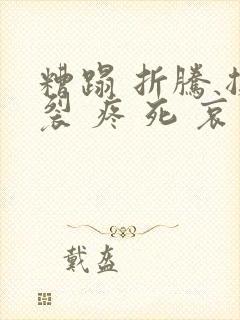 糟蹋 折騰
裂 疼 死 哀
戴盔